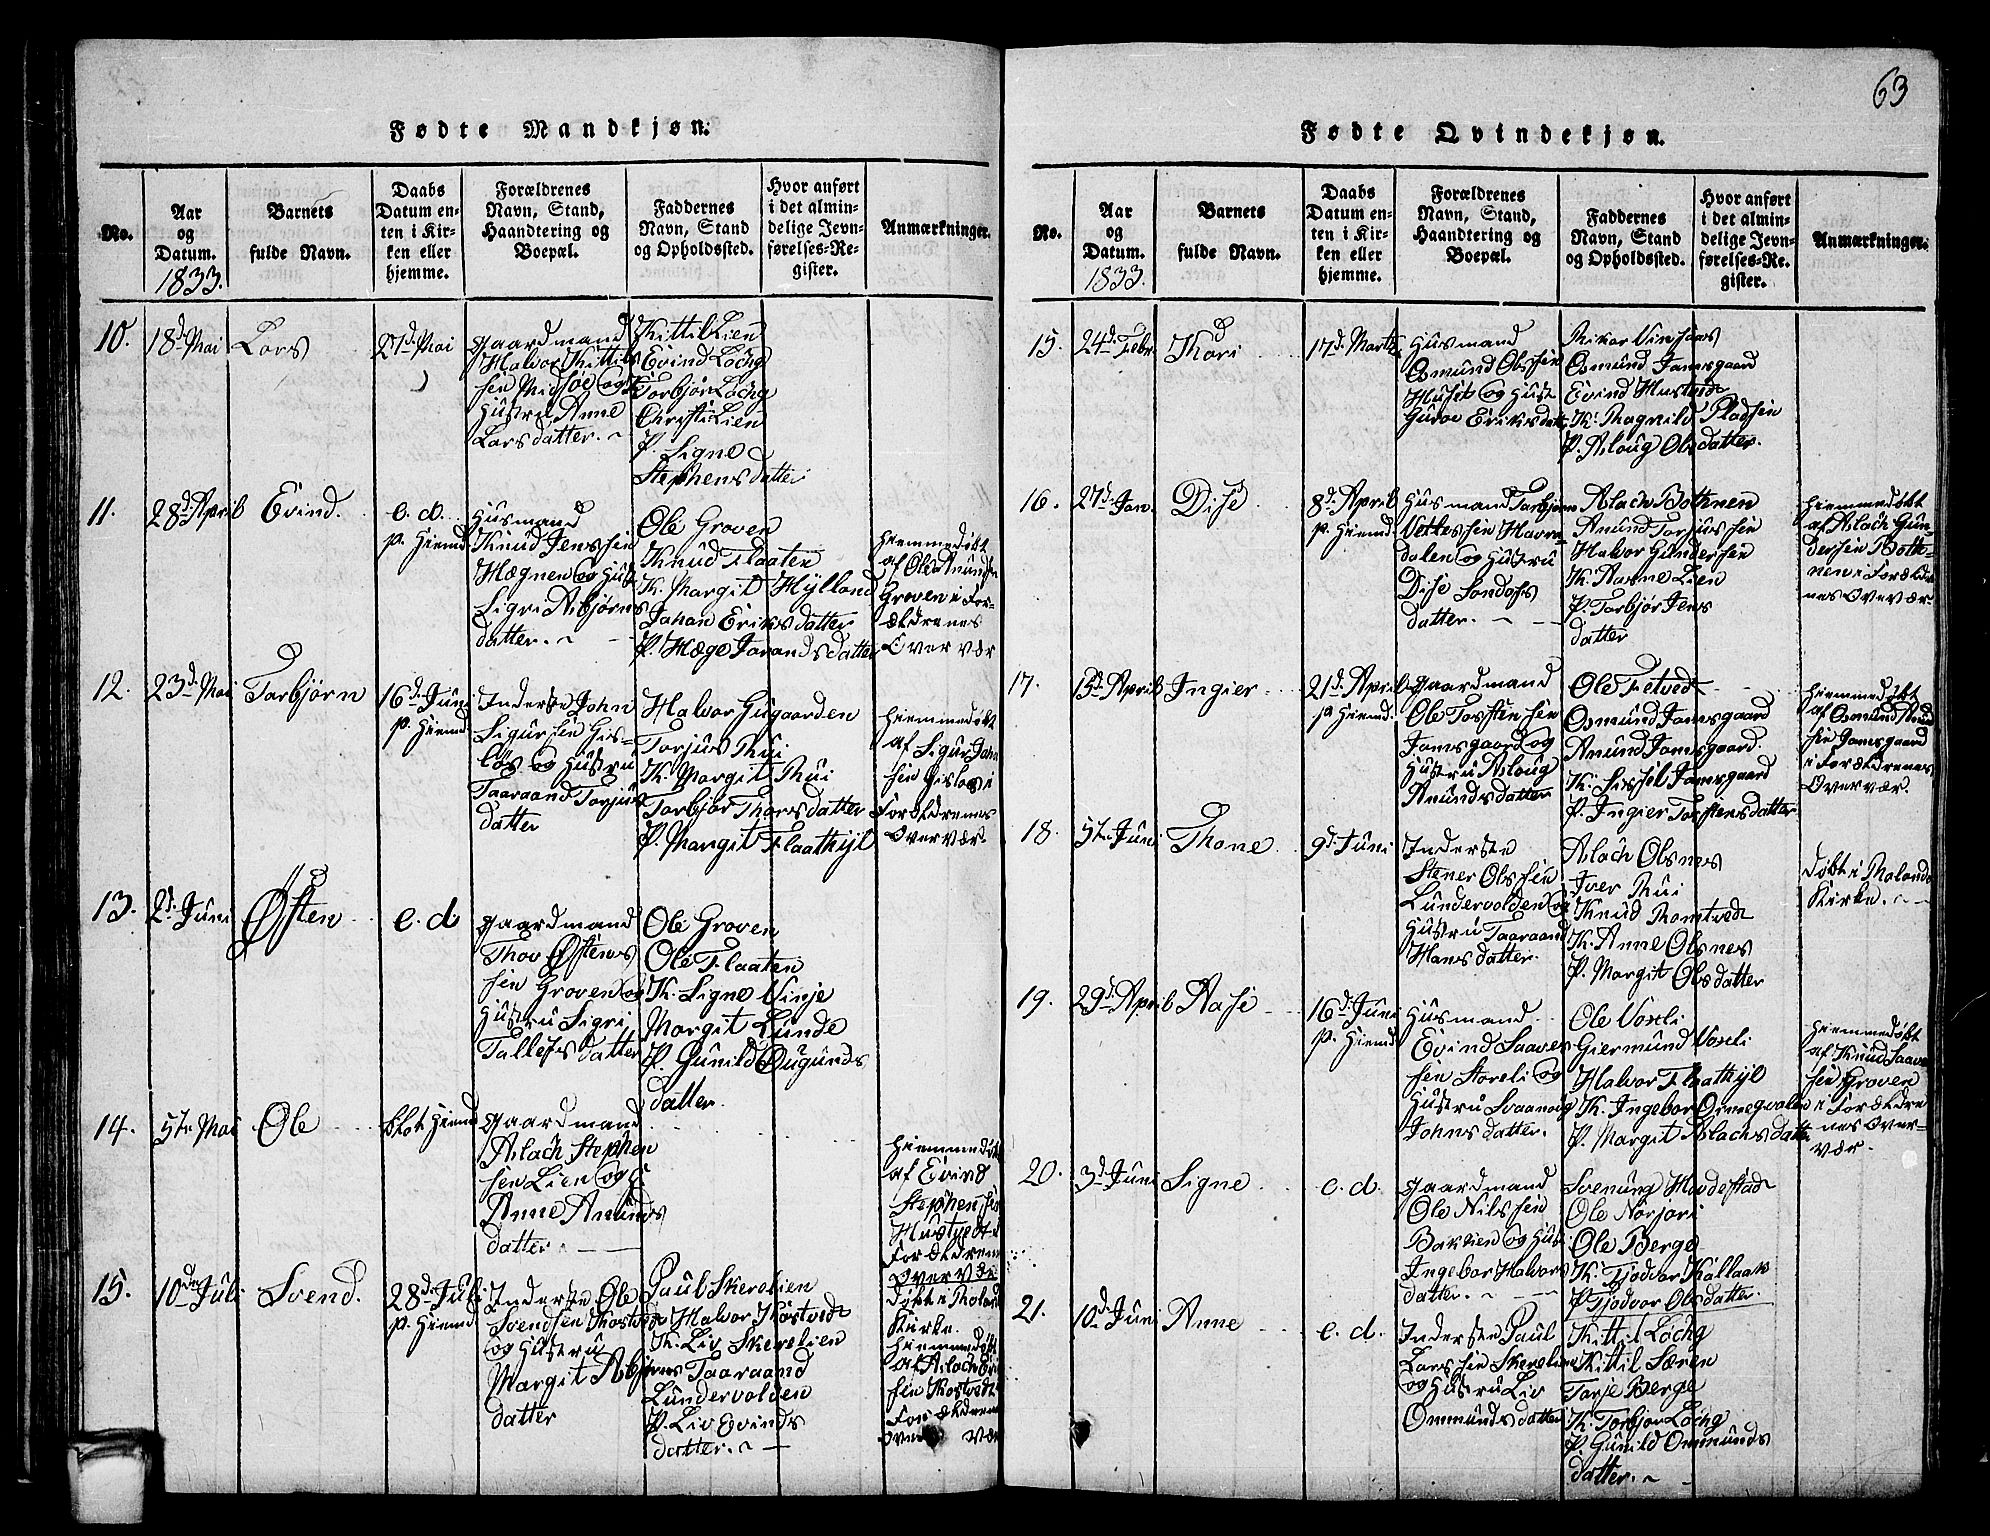 63
Fødte Mandkjøn.
No.
Aar
og
Datum.
1833.
Barnets
fulde Navn.
Daabs
Datum en-
ten i Kir-
ken eller
hjemme.
Forældrenes
Navn, Stand,
Haandtering og
Boepæl.
Faddernes
Navn, Stand
og Opholdssted.
Hvor anført
i det almin-
delige Jevn-
førelses-Re-
gister.
Anmærkninger.
10.
18d Mai
Lars
27d Mai
Gaardmand
Halvor Kittils
sen Midbøe og
Hustru Anne
Larsdatter.
Kittil Lien
Evind Løchg
Torbjør Løchg
Christi Lien
P. Signe
Stephensdatter
11.
28d April
Evind.
e. d.
p. Hiemd
Husmand
Knud Jenssen
Hægnen og Hust
Sigri Asbjørns
datter.
Ole Groven
Knud Flaaten
K. Margit Hylland
Johan Eriksdatter
P. Hæge Jorandsdatter
Hiemmedøbt
af Ole Anunds
Groven i For-
ældrenes
Overvær
12.
23d Mai
Torbjørn
16d Juni
p. Hiemd
Inderste John
Sigursen Gis-
løs og Hustru
Taaraand Torjus
datter
Halvor Gugaarden
Torjus Rui
K. Margit Rui
Torbjør Thorsdatter
P. Margit Flaathyl
Hiemmedøbt
af Sigur John
sen Gisløs i
Forældrenes
Overvær.
13.
2d Juni
Østen
e. d
Gaardmand
Thov Østens
sen Groven og
Hustru Sigri
Tallefsdatter
Ole Groven
Ole Flaaten
K. Signe Vinje
Margit Lunde
P. Gunild Øugunds
datter.
14.
5te Mai
Ole
blot Hiemd
Gaardmand
Aslach Stephen
sen Lien og H
Anne Anunds
datter.
Hiemmedøbt
af Evind
Stephensen
Hustvedt i
Forældrene
Overvær
15.
10de Juli
Svend.
28d Juli
p. Hiemd
Inderste Ole
Svendsen Kostved
og Hustru
Margit Asbjørns
datter
Paul Skerelien
Halvor Kostvedt
K. Liv Skerelien
Taaraand
Lundevolden
P. Liv Evinds
datter.
Døbt i Roland
Kirke.
Hiemmedøbt
af Aslach
sen Kostvedt
Forældrene
Overvær
Fødte Qvindekjøn.
No.
Aar
og
Datum.
1833.
Barnets
fulde Navn.
Daabs
Datum en-
ten i Kir-
ken eller
hjemme.
Forældrenes
Navn, Stand,
Haandtering og
Boepæl.
Faddernes
Navn, Stand
og Opholdssted.
Hvor anført
i det almin-
delige Jevn-
førelses-Re-
gister.
Anmærkninger.
15.
24d Febr.
Kari
17d Marts
Husmand
Osmund Olssen
Huset og Hust
Guroe Eriksdatt
Rikar Vinsaas
Osmund Jamsgaard
Evind Hustvedt
K. Ragnild Pladsen
P. Aslaug Olsdatter.
16.
27d Jan.
Dise
8d April
p. Hiemd
Husmand Torbjørn
Vetlessen Havre-
dalen og Hustru
Dise Sondofs
datter.
Aslach Bothnen
Anund Torjussen
Halvor Gundersen
K. Aarne Lien
P. Torbjør Jens
datter
Hiemmedøbt
af Aslach Gun-
dersen Both-
nen i Foreldre
nes Overvær
17.
15d April
Ingier
21d April
p Hiemd.
Gaardmand
Ole Torstensen
Jamsgaard og
Hustru Aslaug
Anundsdatter
Ole Tetvedt
Osmund Jamsgaard
Anund Jamsgaard.
K. Sissel Jamsgaard
P. Ingier Torstensdatter
Hiemmedøbt
af Osmund Anund
sen Jamsgaard
i Forældrenes
Overvær.
18.
5te Juni
Thone
9d Juni
Inderste
Stener Olssen
Lundevolden og
Hustru Taaraand
Hansdatter.
Aslach Olsnes
Iver Rui
Knud Romtvedt
K. Anne Olsnes
P. Margit Olsdatter
Døbt i Rolands
Kirke.
19.
29d April
Aase
16d Juni
p. Hiemd
Husmand
Evind Saaves
sen Storeli og
Hustru Svanaug
Johnsdatter.
Ole Voxli
Giermund Voxli
Halvor Flathyl
K. Ingebor Ormegvalen
P. Margit Aslachsdatter
Hiemmedøbt
af Knud Saave
sen Groven
i Forældre
nes Over-
vær.
20.
3d Juni
Signe
e. d.
Gaardmand
Ole Nilssen
Bakken og Hust
Ingebor Halvors
datter.
Svenung Hovdestad
Ole Norjori
Ole Berge
K. Tjodvor Kallaak
P. Tjodvor Olsdatter.
21.
10d Juni
Anne
e. d.
Inderste Paul
Larssen Skerelien
og Hustru Liv
Ommundsdatter
Kittil Løchg
Kittil Særen
Torje Berge
K. Torbjør Løchg
P. Gunild Ommunds
datter.